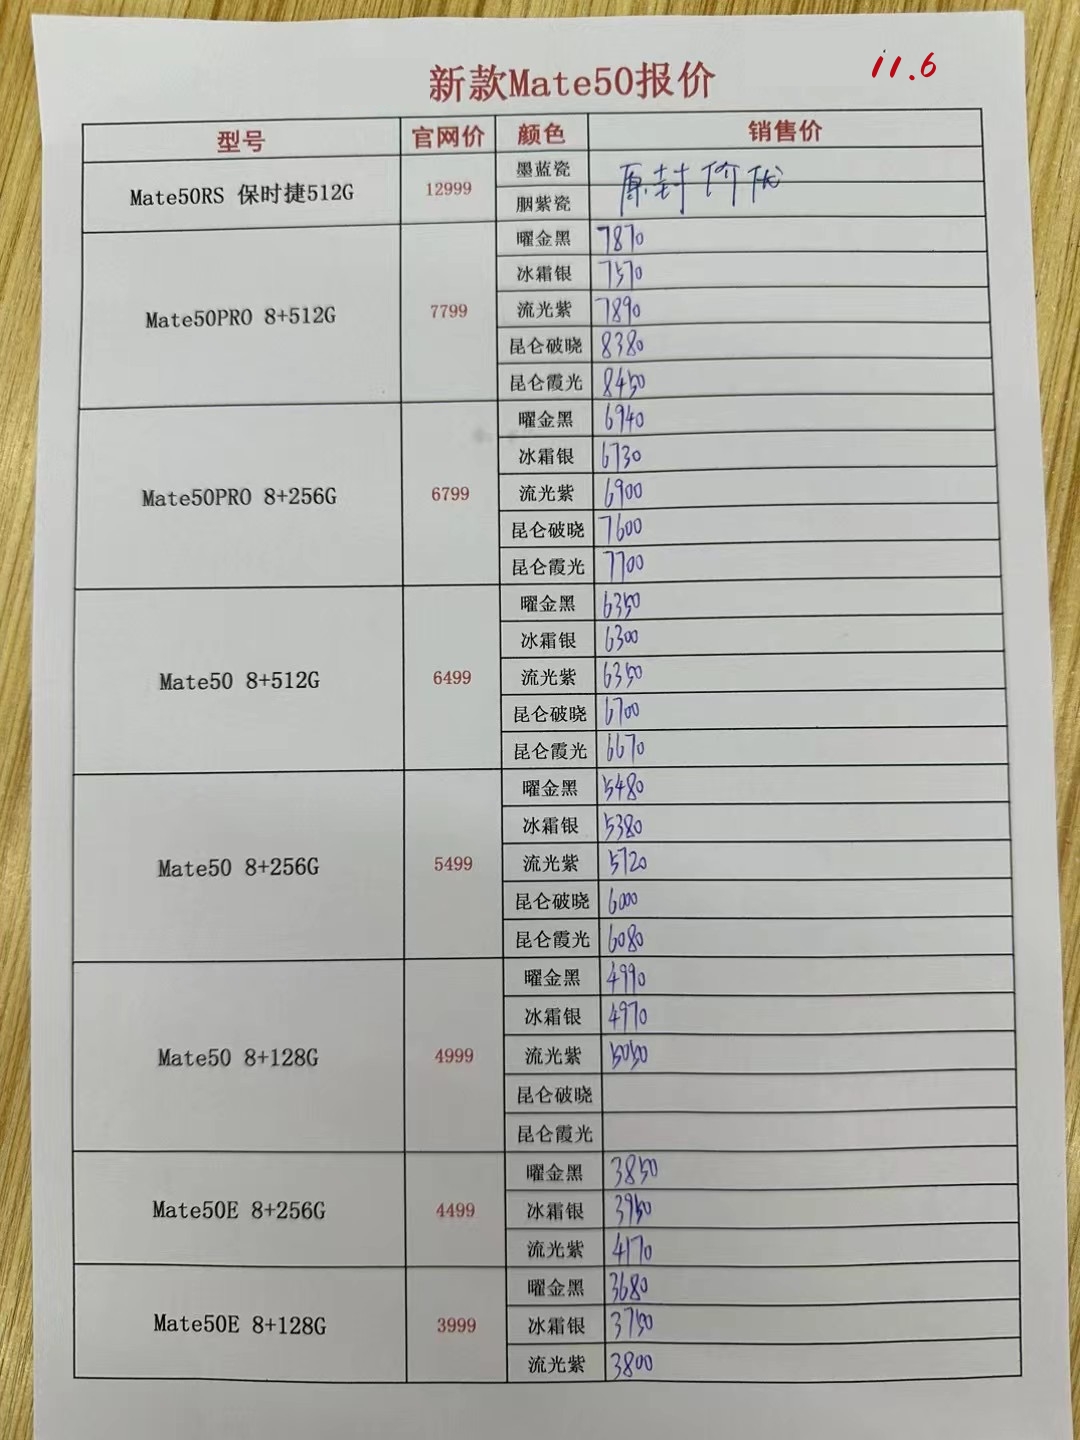 新款Mate50报价
11.6
型号 官网价 颜色 销售价
Mate50RS 保时捷512G 12999 墨蓝瓷 原封价优
胭紫瓷
Mate50PRO 8+512G 7799 曜金黑 7870
冰霜银 7570
流光紫 7890
昆仑破晓 8380
昆仑霞光 8450
Mate50PRO 8+256G 6799 曜金黑 6940
冰霜银 6730
流光紫 6900
昆仑破晓 7600
昆仑霞光 7700
Mate50 8+512G 6499 曜金黑 6350
冰霜银 6300
流光紫 6350
昆仑破晓 6700
昆仑霞光 6670
Mate50 8+256G 5499 曜金黑 5480
冰霜银 5380
流光紫 5720
昆仑破晓 6000
昆仑霞光 6080
Mate50 8+128G 4999 曜金黑 4990
冰霜银 4970
流光紫 5050
昆仑破晓
昆仑霞光
Mate50E 8+256G 4499 曜金黑 3850
冰霜银 3950
流光紫 4170
Mate50E 8+128G 3999 曜金黑 3680
冰霜银 3750
流光紫 3800